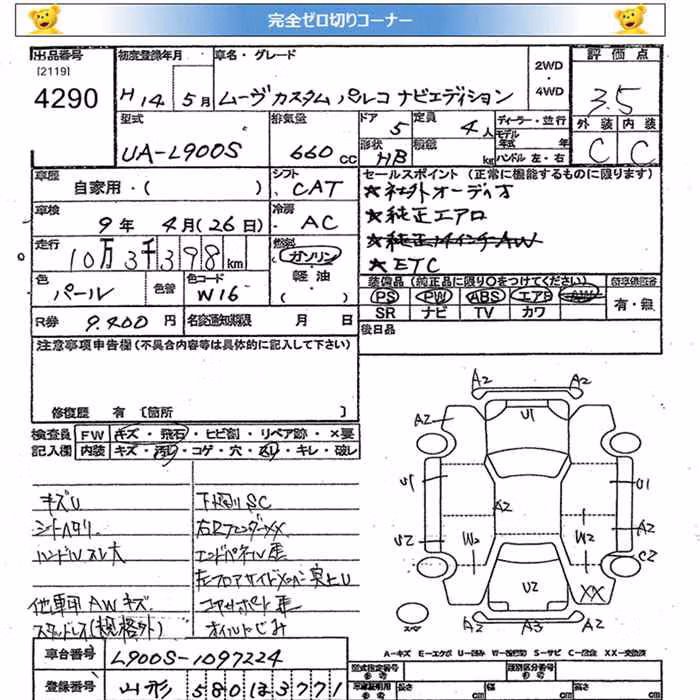 完全ゼロ切りコーナー
出品番号 初度登録年月 車名・グレード 2WD ・ 4WD 評価点
[2119]
4290 H14年 5月 ムーヴカスタム パルコ ナビエディション 3.5
型式 排気量 ドア 5 定員 4人 ディーラー・並行 外装 内装
UA-L900S 660cc 形状 HB 積載 kg モデル年式 年 C C
ハンドル 左・右
車歴 シフト セールスポイント (正常に機能するものに限ります)
自家用・( ) CAT ★社外オーディオ
車検 冷房 ★純正エアロ
9年 4月(26日) AC ★純正14インチAW
走行 燃料 ★ETC
10万3千398km ガソリン
軽油
( )
色 パール 色替 色コード W16
装備品 (純正品に限り○をつけてください)
PS PW ABS エアB AW
SR ナビ TV カワ 有・無
R券 9.400円 名変通知期限 月 日
後日品
注意事項申告欄 (不具合内容等は具体的に記入して下さい)
修復歴 有 [箇所 ]
検査員 FW キズ・飛石・ヒビ割・リペア跡・×要
記入欄 内装 キズ・汚れ・コゲ・穴・スレ・キレ・破レ
キズU 下廻りSC
シートヘタリ 右Rフェンダー××
ハンドルスレ大 エンドパネル
他車用AWキズ
スタッドレス(規格外) オイルにじみ
A2
A2 U1 A2
U1 U1
A2
A2
U2 W2 W2 C2
U2 XX
スペア A2 A3 A2
A-キズ E-エクボ U-凹み W-補修跡 S-サビ C-腐蝕 XX-交換
車台番号 L900S-1097224
登録番号 山形 580 ほ 3771
型式指定番号 類別区分番号
車庫証明用参考 長さ cm 幅 cm 高さ cm